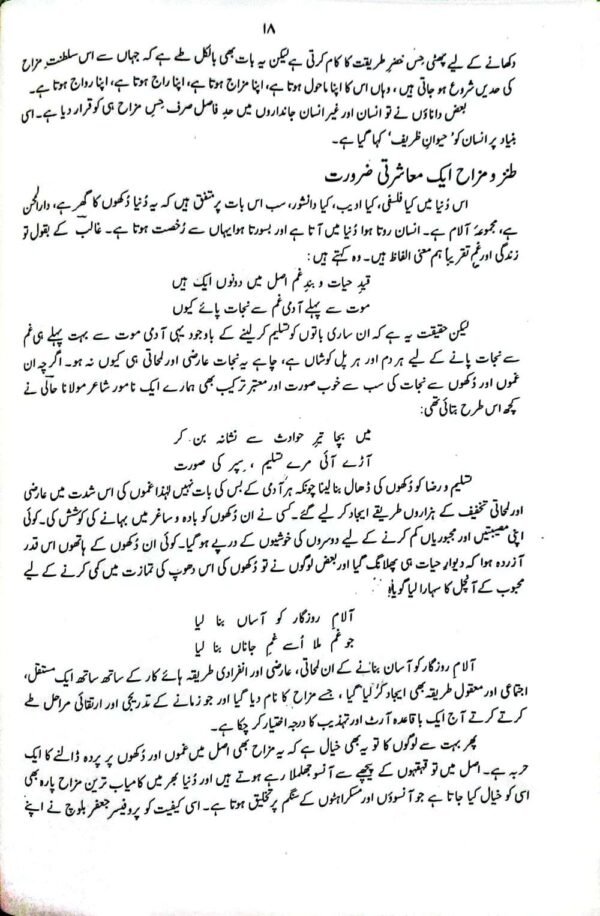 ۱۸
دکھانے کے لیے پھٹی جس خضرِ طریقت کا کام کرتی ہے لیکن یہ بات بھی بالکل طے ہے کہ جہاں سے اس سلطنتِ مزاح
کی حدیں شروع ہو جاتی ہیں، وہاں اس کا اپنا ماحول ہوتا ہے، اپنا مزاج ہوتا ہے، اپنا راج ہوتا ہے، اپنا رواج ہوتا ہے۔
بعض داناؤں نے تو انسان اور غیر انسان جانداروں میں حدِ فاصل صرف حسِ مزاح ہی کو قرار دیا ہے۔ اسی
بنیاد پر انسان کو ’حیوانِ ظریف‘ کہا گیا ہے۔
طنز و مزاح ایک معاشرتی ضرورت
اس دُنیا میں کیا فلسفی، کیا ادیب، کیا دانشور، سب اس بات پر متفق ہیں کہ یہ دُنیا دُکھوں کا گھر ہے، دارالحن
ہے، مجموعۂ آلام ہے۔ انسان روتا ہوا دُنیا میں آتا ہے اور بسورتا ہوا یہاں سے رُخصت ہوتا ہے۔ غالب کے بقول تو
زندگی اور غم تقریباً ہم معنی الفاظ ہیں۔ وہ کہتے ہیں:
قیدِ حیات و بندِ غم اصل میں دونوں ایک ہیں
موت سے پہلے آدمی غم سے نجات پائے کیوں
لیکن حقیقت یہ ہے کہ ان ساری باتوں کو تسلیم کر لینے کے باوجود یہی آدمی موت سے بہت پہلے ہی غم
سے نجات پانے کے لیے ہر دم اور ہر پل کوشاں ہے، چاہے یہ نجات عارضی اور لمحاتی ہی کیوں نہ ہو۔ اگرچہ ان
غموں اور دُکھوں سے نجات کی سب سے خوب صورت اور معتبر ترکیب بھی ہمارے ایک نامور شاعر مولانا حالی نے
کچھ اس طرح بتائی تھی:
میں بچا تیرِ حوادث سے نشانہ بن کر
آڑے آئی مرے تسلیم، سپر کی صورت
تسلیم و رضا کو دُکھوں کی ڈھال بنا لینا چونکہ ہر آدمی کے بس کی بات نہیں لہٰذا غموں کی اس شدت میں عارضی
اور لمحاتی تخفیف کے ہزاروں طریقے ایجاد کر لیے گئے۔ کسی نے ان دُکھوں کو بادہ و ساغر میں بہانے کی کوشش کی۔ کوئی
اپنی مصیبتیں اور مجبوریاں کم کرنے کے لیے دوسروں کی خوشیوں کے درپے ہو گیا۔ کوئی ان دُکھوں کے ہاتھوں اس قدر
آزردہ ہوا کہ دیوارِ حیات ہی پھلانگ گیا اور بعض لوگوں نے تو دُکھوں کی اس دھوپ کی تمازت میں کمی کرنے کے لیے
محبوب کے آنچل کا سہارا لیا گویا:
آلامِ روزگار کو آساں بنا لیا
جو غم ملا اُسے غمِ جاناں بنا لیا
آلامِ روزگار کو آسان بنانے کے ان لمحاتی، عارضی اور انفرادی طریقہ ہائے کار کے ساتھ ساتھ ایک مستقل،
اجتماعی اور معقول طریقہ بھی ایجاد کر لیا گیا، جسے مزاح کا نام دیا گیا اور جو زمانے کے تدریجی اور ارتقائی مراحل طے
کرتے کرتے آج ایک باقاعدہ آرٹ اور تہذیب کا درجہ اختیار کر چکا ہے۔
پھر بہت سے لوگوں کا تو یہ بھی خیال ہے کہ یہ مزاح بھی اصل میں غموں اور دُکھوں پر پردہ ڈالنے کا ایک
حربہ ہے۔ اصل میں تو قہقہوں کے پیچھے سے آنسو جھلملا رہے ہوتے ہیں اور دُنیا بھر میں کامیاب ترین مزاح پارہ بھی
اسی کو خیال کیا جاتا ہے جو آنسوؤں اور مسکراہٹوں کے سنگم پر تخلیق ہوتا ہے۔ اسی کیفیت کو پروفیسر جعفر بلوچ نے اپنے